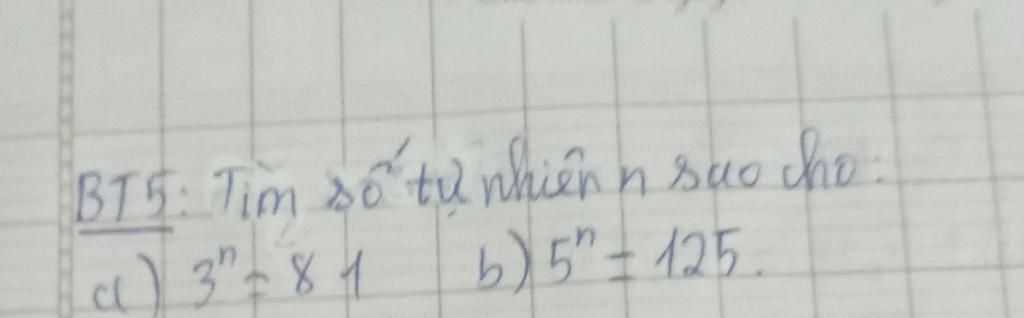 BT5: Tìm số tự nhiên n sao cho:
a) 3ⁿ = 81 b) 5ⁿ = 125.